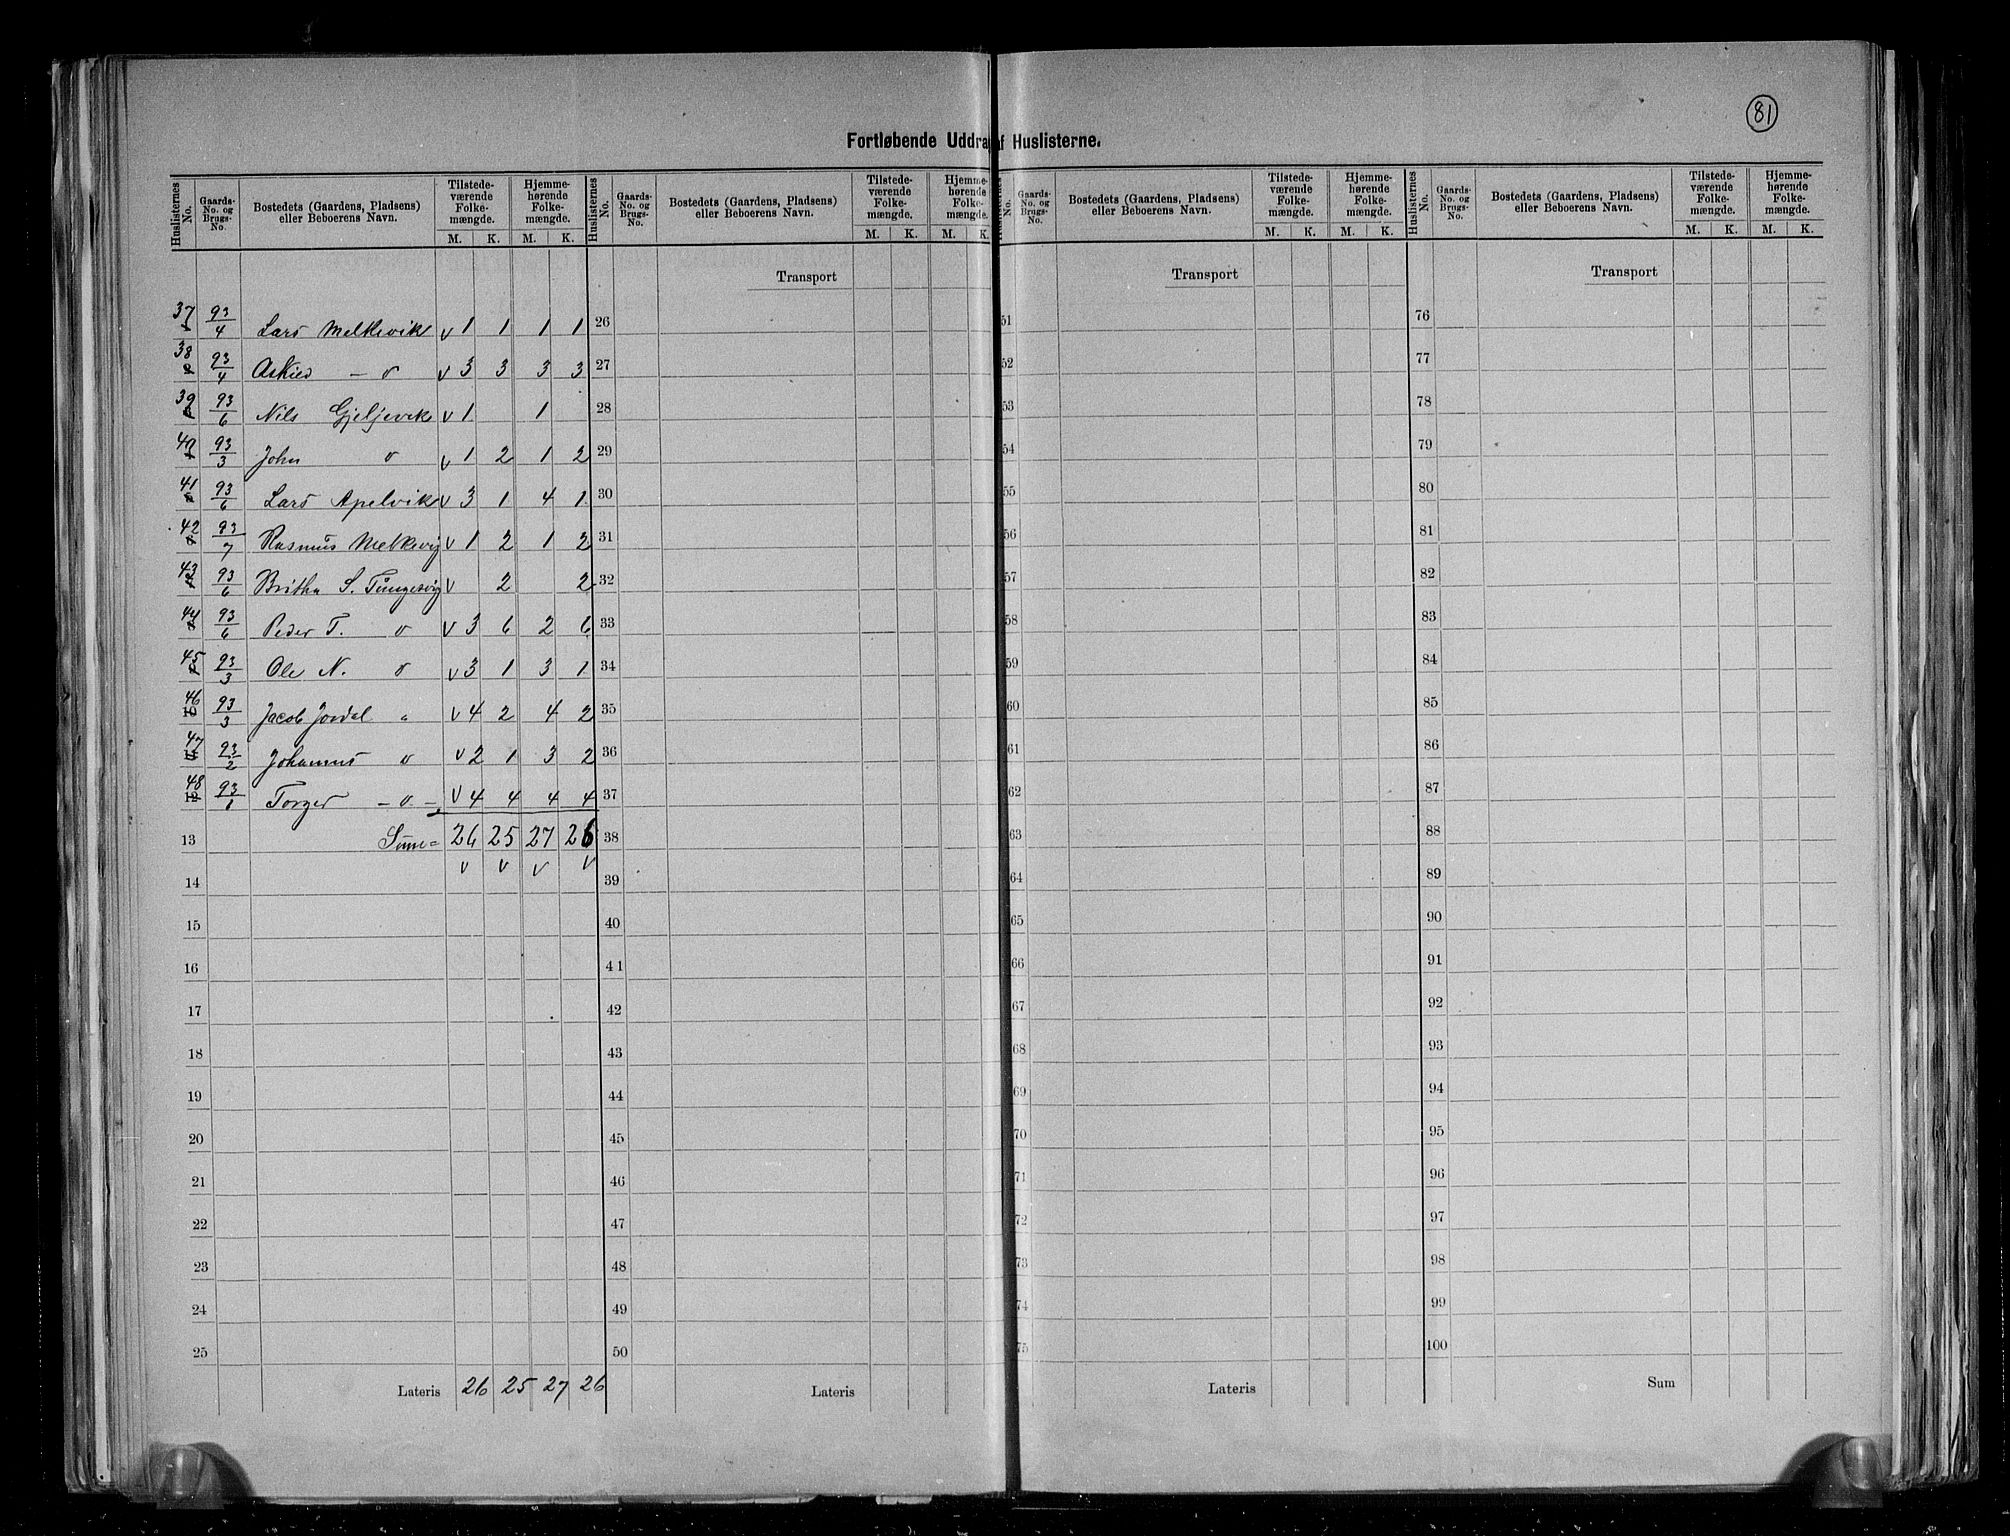 81
Fortløbende Uddrag af Huslisterne.
Huslisternes No. Gaards-No. og Brugs-No. Bostedets (Gaardens, Pladsens) eller Beboerens Navn. Tilstedeværende Folkemængde. M. K. Hjemmehørende Folkemængde. M. K.
Huslisternes No. Gaards-No. og Brugs-No. Bostedets (Gaardens, Pladsens) eller Beboerens Navn. Tilstedeværende Folkemængde. M. K. Hjemmehørende Folkemængde. M. K.
Huslisternes No. Gaards-No. og Brugs-No. Bostedets (Gaardens, Pladsens) eller Beboerens Navn. Tilstedeværende Folkemængde. M. K. Hjemmehørende Folkemængde. M. K.
Huslisternes No. Gaards-No. og Brugs-No. Bostedets (Gaardens, Pladsens) eller Beboerens Navn. Tilstedeværende Folkemængde. M. K. Hjemmehørende Folkemængde. M. K.
Transport Transport Transport
37 93/4 Lars Melkevik v 1 1 1 1 26 51 76
38 93/4 Askied — " v 3 3 3 3 27 52 77
39 93/6 Nils Gjeljevik v 1 1 28 53 78
40 93/3 John " v 1 2 1 2 29 54 79
41 93/6 Lars Apelvik v 3 1 4 1 30 55 80
42 93/7 Rasmus Melkevig v 1 2 1 2 31 56 81
43 93/6 Britha S. Tungesvig v 2 2 32 57 82
44 93/6 Peder T. " v 3 6 2 6 33 58 83
45 93/3 Ole N. " v 3 1 3 1 34 59 84
46 10 93/3 Jacob Jordal " v 4 2 4 2 35 60 85
47 11 93/2 Johannes " v 2 1 3 2 36 61 86
48 12 93/1 Torger — " — v 4 4 4 4 37 62 87
13 Sum = 26 25 27 26 38 63 88
v v v v
14 39 64 89
15 40 65 90
16 41 66 91
17 42 67 92
18 43 68 93
19 44 69 94
20 45 70 95
21 46 71 96
22 47 72 97
23 48 73 98
24 49 74 99
25 50 75 100
Lateris 26 25 27 26 Lateris Lateris Sum